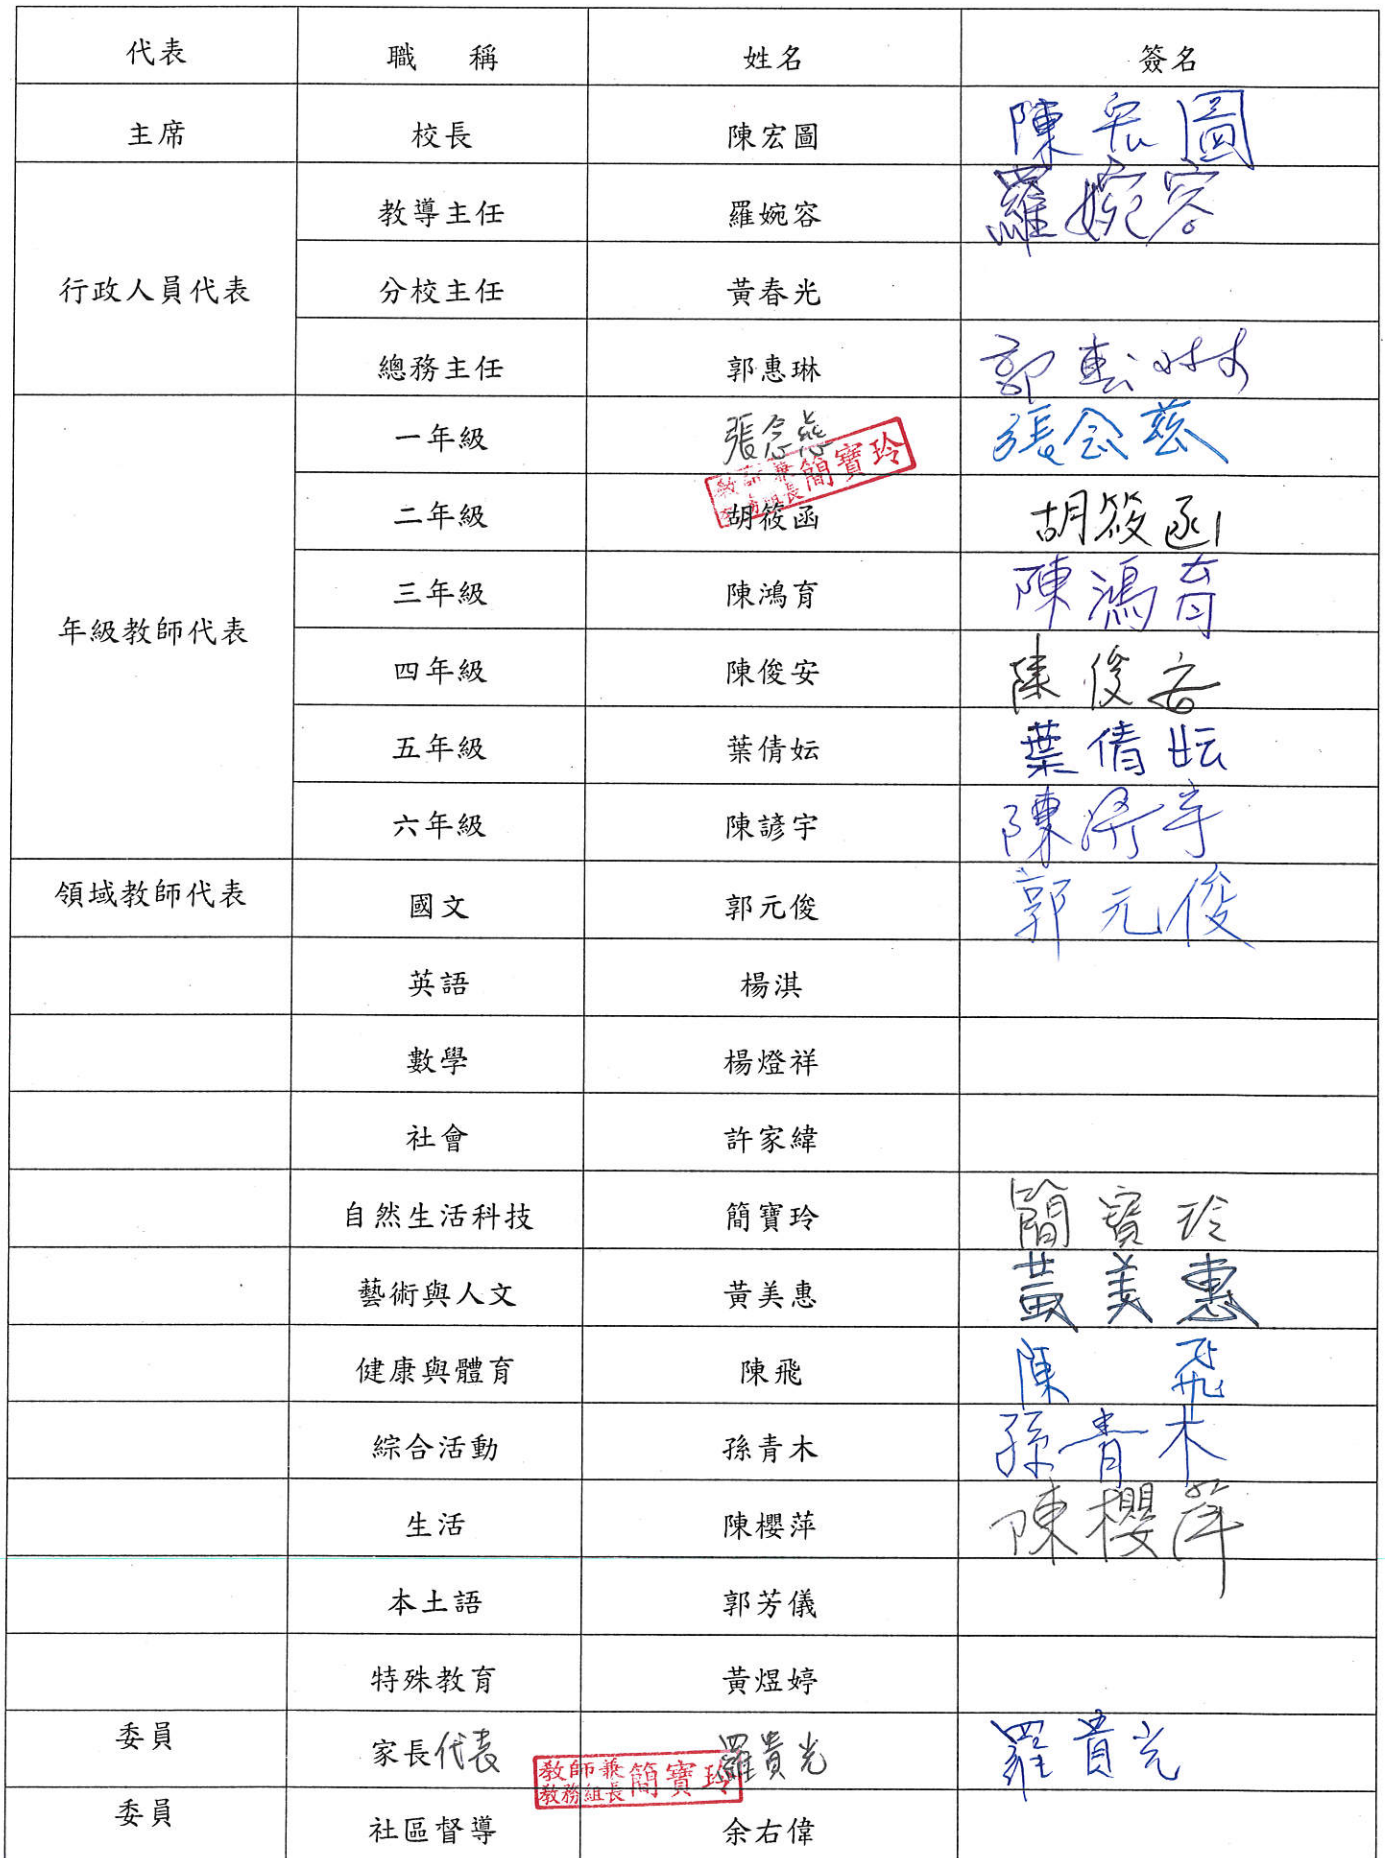 代表 職 稱 姓名 簽名
主席 校長 陳宏圖 陳宏圖
教導主任 羅婉容 羅婉容
行政人員代表 分校主任 黃春光
總務主任 郭惠琳 郭惠琳
一年級 張念慈 張念慈
教師兼 教務組長 簡寶玲
二年級 胡筱函 胡筱函
三年級 陳鴻育 陳鴻育
年級教師代表
四年級 陳俊安 陳俊安
五年級 葉倩妘 葉倩妘
六年級 陳諺宇 陳諺宇
領域教師代表 國文 郭元俊 郭元俊
英語 楊淇
數學 楊燈祥
社會 許家緯
自然生活科技 簡寶玲 簡寶玲
藝術與人文 黃美惠 黃美惠
健康與體育 陳飛 陳飛
綜合活動 孫青木 孫青木
生活 陳櫻萍 陳櫻萍
本土語 郭芳儀
特殊教育 黃煜婷
委員 家長代表 羅貴光 羅貴光
教師兼 教務組長 簡寶玲
委員 社區督導 余右偉